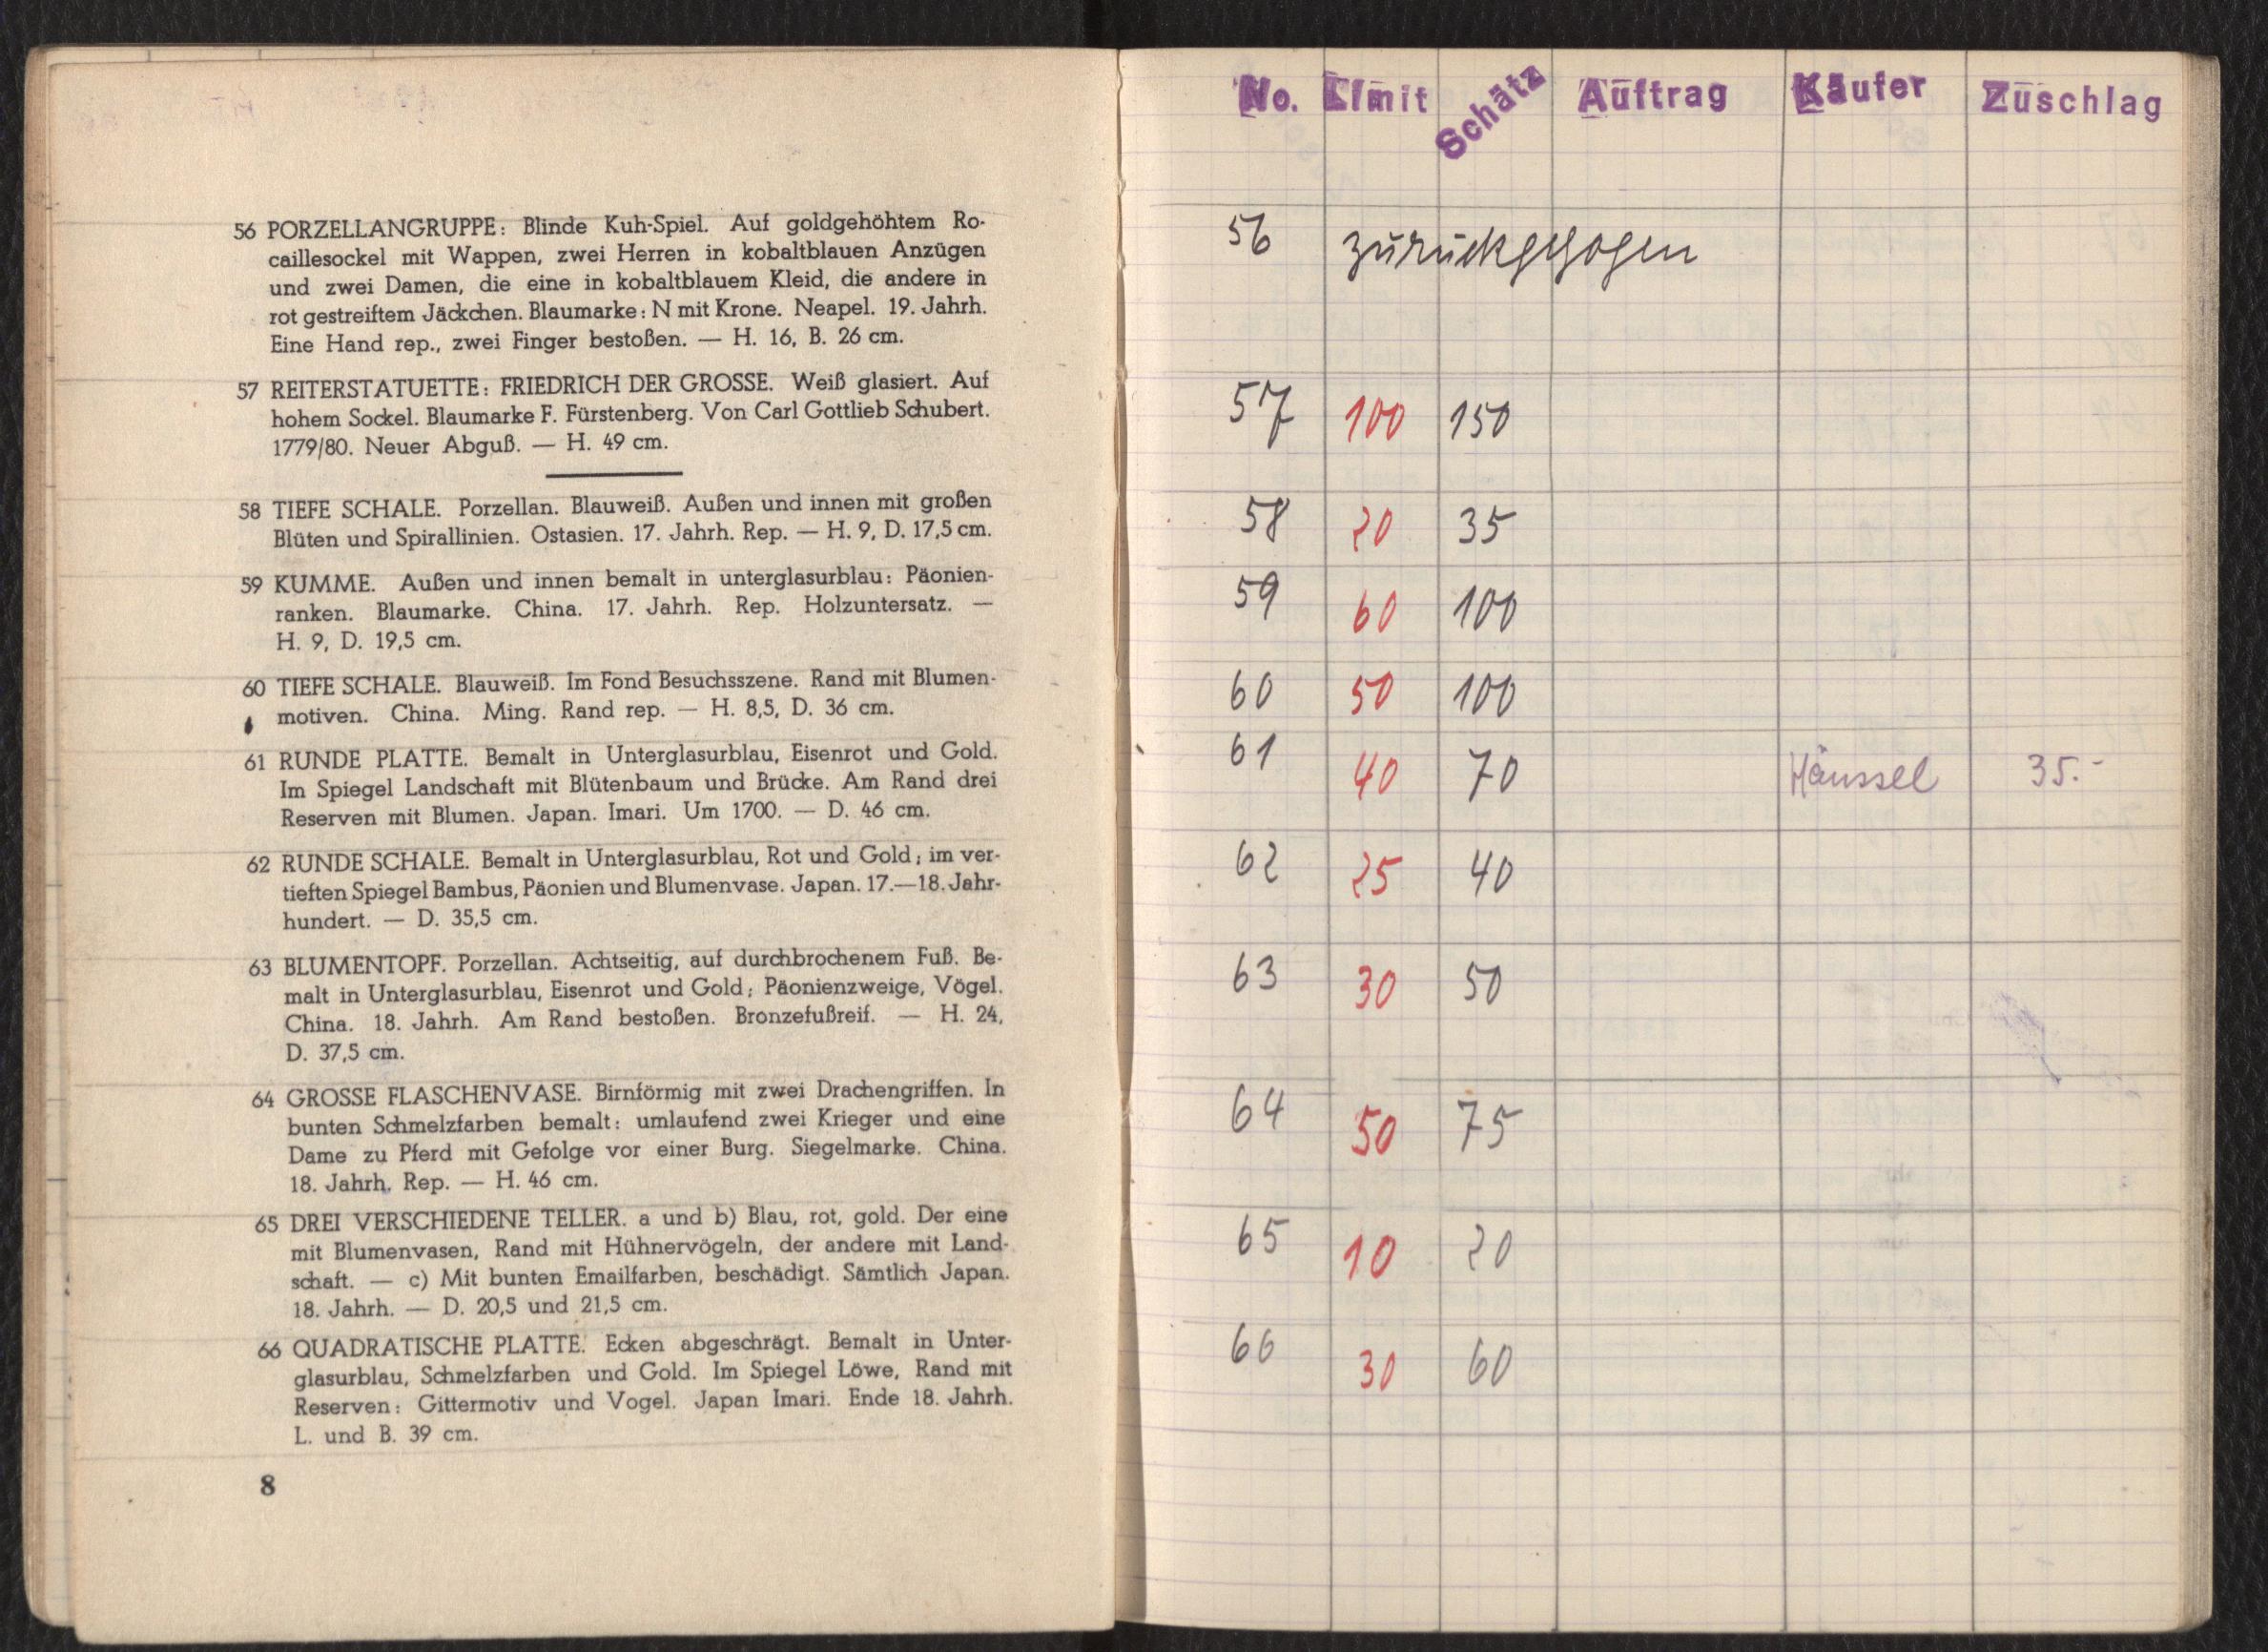 56 PORZELLANGRUPPE: Blinde Kuh-Spiel. Auf goldgehöhtem Ro-
caillesockel mit Wappen, zwei Herren in kobaltblauen Anzügen
und zwei Damen, die eine in kobaltblauem Kleid, die andere in
rot gestreiftem Jäckchen. Blaumarke: N mit Krone. Neapel. 19. Jahrh.
Eine Hand rep., zwei Finger bestoßen. — H. 16, B. 26 cm.
57 REITERSTATUETTE: FRIEDRICH DER GROSSE. Weiß glasiert. Auf
hohem Sockel. Blaumarke F. Fürstenberg. Von Carl Gottlieb Schubert.
1779/80. Neuer Abguß. — H. 49 cm.
58 TIEFE SCHALE. Porzellan. Blauweiß. Außen und innen mit großen
Blüten und Spirallinien. Ostasien. 17. Jahrh. Rep. — H. 9, D. 17,5 cm.
59 KUMME. Außen und innen bemalt in unterglasurblau: Päonien-
ranken. Blaumarke. China. 17. Jahrh. Rep. Holzuntersatz. —
H. 9, D. 19,5 cm.
60 TIEFE SCHALE. Blauweiß. Im Fond Besuchsszene. Rand mit Blumen-
motiven. China. Ming. Rand rep. — H. 8,5, D. 36 cm.
61 RUNDE PLATTE. Bemalt in Unterglasurblau, Eisenrot und Gold.
Im Spiegel Landschaft mit Blütenbaum und Brücke. Am Rand drei
Reserven mit Blumen. Japan. Imari. Um 1700. — D. 46 cm.
62 RUNDE SCHALE. Bemalt in Unterglasurblau, Rot und Gold; im ver-
tieften Spiegel Bambus, Päonien und Blumenvase. Japan. 17.—18. Jahr-
hundert. — D. 35,5 cm.
63 BLUMENTOPF. Porzellan. Achtseitig, auf durchbrochenem Fuß. Be-
malt in Unterglasurblau, Eisenrot und Gold; Päonienzweige, Vögel.
China. 18. Jahrh. Am Rand bestoßen. Bronzefußreif. — H. 24,
D. 37,5 cm.
64 GROSSE FLASCHENVASE. Birnförmig mit zwei Drachengriffen. In
bunten Schmelzfarben bemalt: umlaufend zwei Krieger und eine
Dame zu Pferd mit Gefolge vor einer Burg. Siegelmarke. China.
18. Jahrh. Rep. — H. 46 cm.
65 DREI VERSCHIEDENE TELLER. a und b) Blau, rot, gold. Der eine
mit Blumenvasen, Rand mit Hühnervögeln, der andere mit Land-
schaft. — c) Mit bunten Emailfarben, beschädigt. Sämtlich Japan.
18. Jahrh. — D. 20,5 und 21,5 cm.
66 QUADRATISCHE PLATTE. Ecken abgeschrägt. Bemalt in Unter-
glasurblau, Schmelzfarben und Gold. Im Spiegel Löwe, Rand mit
Reserven: Gittermotiv und Vogel. Japan Imari. Ende 18. Jahrh.
L. und B. 39 cm.
8
No. Limit Schätz Auftrag Käufer Zuschlag
56 zurückgezogen
57 100 150
58 20 35
59 60 100
60 50 100
61 40 70 Häussel 35.-
62 25 40
63 30 50
64 50 75
65 10 20
66 30 60